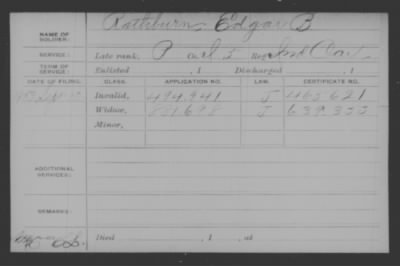 NAME OF SOLDIER: Rathburn, Edgar B
SERVICE: Late rank, P Co. Reg
TERM OF SERVICE: Enlisted , 1 Discharged , 1
DATE OF FILING. CLASS. APPLICATION NO. LAW. CERTIFICATE NO.
Invalid, 494,941 J 465621
Widow, 801,698 J 639,333
Minor,
ADDITIONAL SERVICES:
REMARKS:
Died , 1 , at